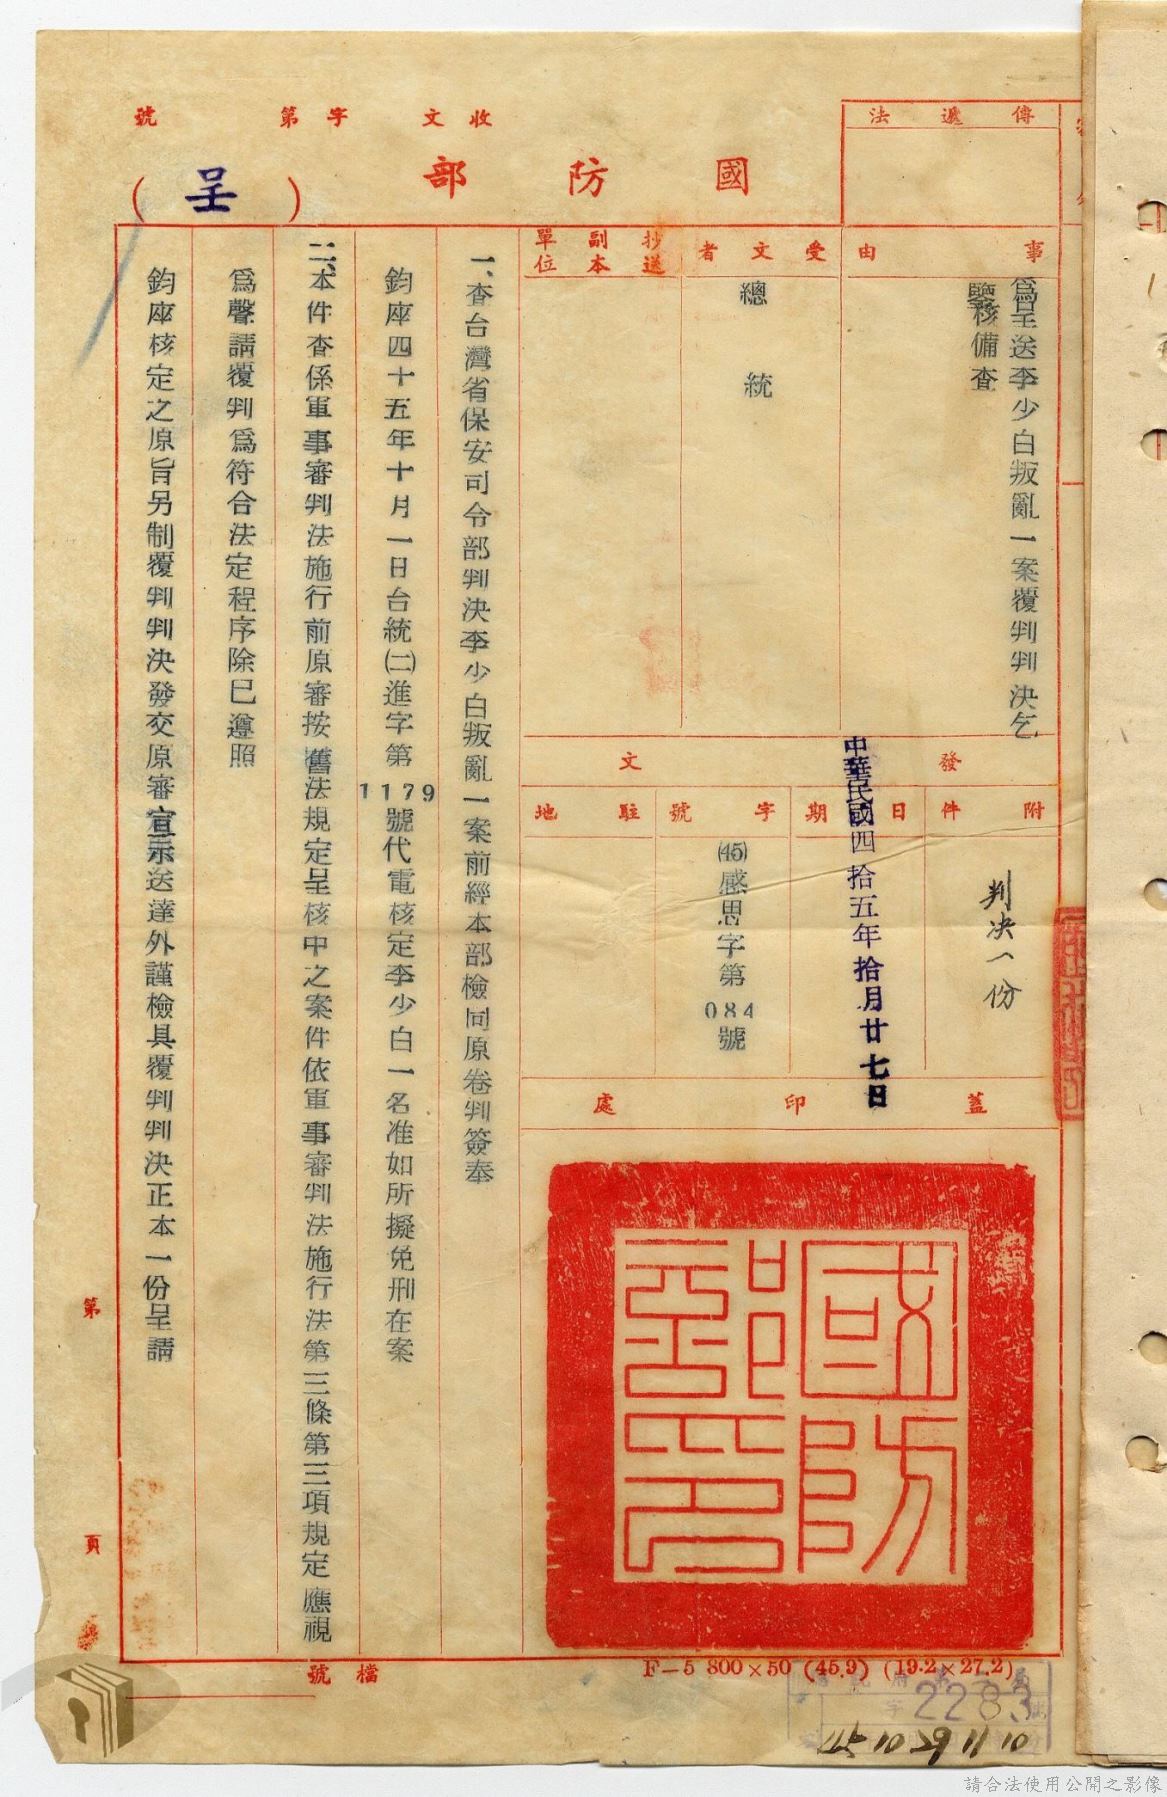 收文　字第　號
國防部
（呈）
傳遞法
事由
為呈送李少白叛亂一案覆判判決乞
鑒核備查
受文者
總統
抄送副本單位
發文
附件
判決一份
日期
中華民國四拾五年拾月廿七日
字號
(45)感思字第084號
駐地
蓋印處
國防部印
一、查台灣省保安司令部判決李少白叛亂一案前經本部檢同原卷判簽奉
鈞座四十五年十月一日台統(二)進字第1179號代電核定李少白一名准如所擬免刑在案
二、本件查係軍事審判法施行前原審按舊法規定呈核中之案件依軍事審判法施行法第三條第三項規定應視
為聲請覆判為符合法定程序除已遵照
鈞座核定之原旨另制覆判判決發交原審宣示送達外謹檢具覆判判決正本一份呈請
第　頁
檔號
F—5 800×50 (45.9) (19.2×27.2)
2283
45 10 29 11 10
請合法使用公開之影像